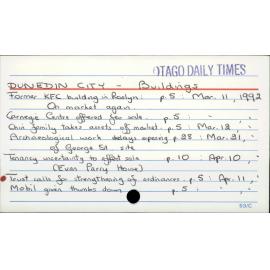 OTAGO DAILY TIMES
DUNEDIN CITY - Buildings
Former KFC building in Roslyn : p.5 : Mar. 11, 1992
On market again.
Carnegie Centre offered for sale : p.5 : " ,
Chin family takes assets off market : p.5 : Mar. 12, "
Archaeological work delays opening p.28 : Mar. 21, "
of George St. site
Tenancy uncertainty to affect sale p.10 : Apr. 10, "
(Evan Parry House)
Trust calls for strengthening of ordinances. p.5 : Apr. 11, "
Mobil given thumbs down p.5 : "
53/C